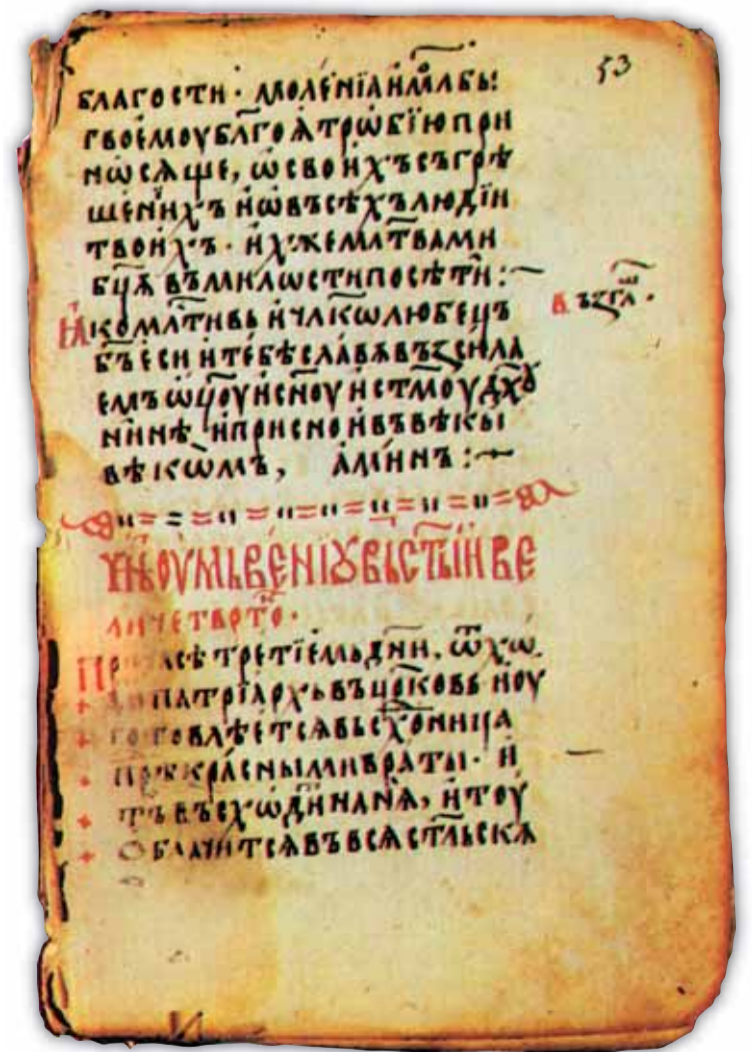 53
благости · моленїа и мл҃бы
твоемоу бл҃гоѫтрѡбїю при
нѡсѧще, ѡ своих съгрѣ
шенїихъ и ѡ въсѣхъ людїи
твоихъ · ихже мл҃твами
бц҃ѫ въ милѡсти посѣти :~
въ възгл҃ш ·
Ꙗко мл҃тивь и чл҃колюбець
бъ҃ еси и тебѣ славѫ въꙁсила
емъ ѡц҃оу и сн҃оу и ст҃моу дх҃ꙋ
нинѣ и присно и въ вѣкы
вѣкѡмъ, аминъ :~
Чинь оумьвенїꙋ вь ст҃їи ве
личетврто ·
часѣ третїемь дн҃и, ѿхѡ
патрїархь въ цр҃ковь и оу
готовлѣетсѧ вьсхⷪ҇дница
прѣ красными врати · и
тъ въсхѡдии на нѧ, и тоу
облачитсѧ въ всѧ ст҃льскѧ